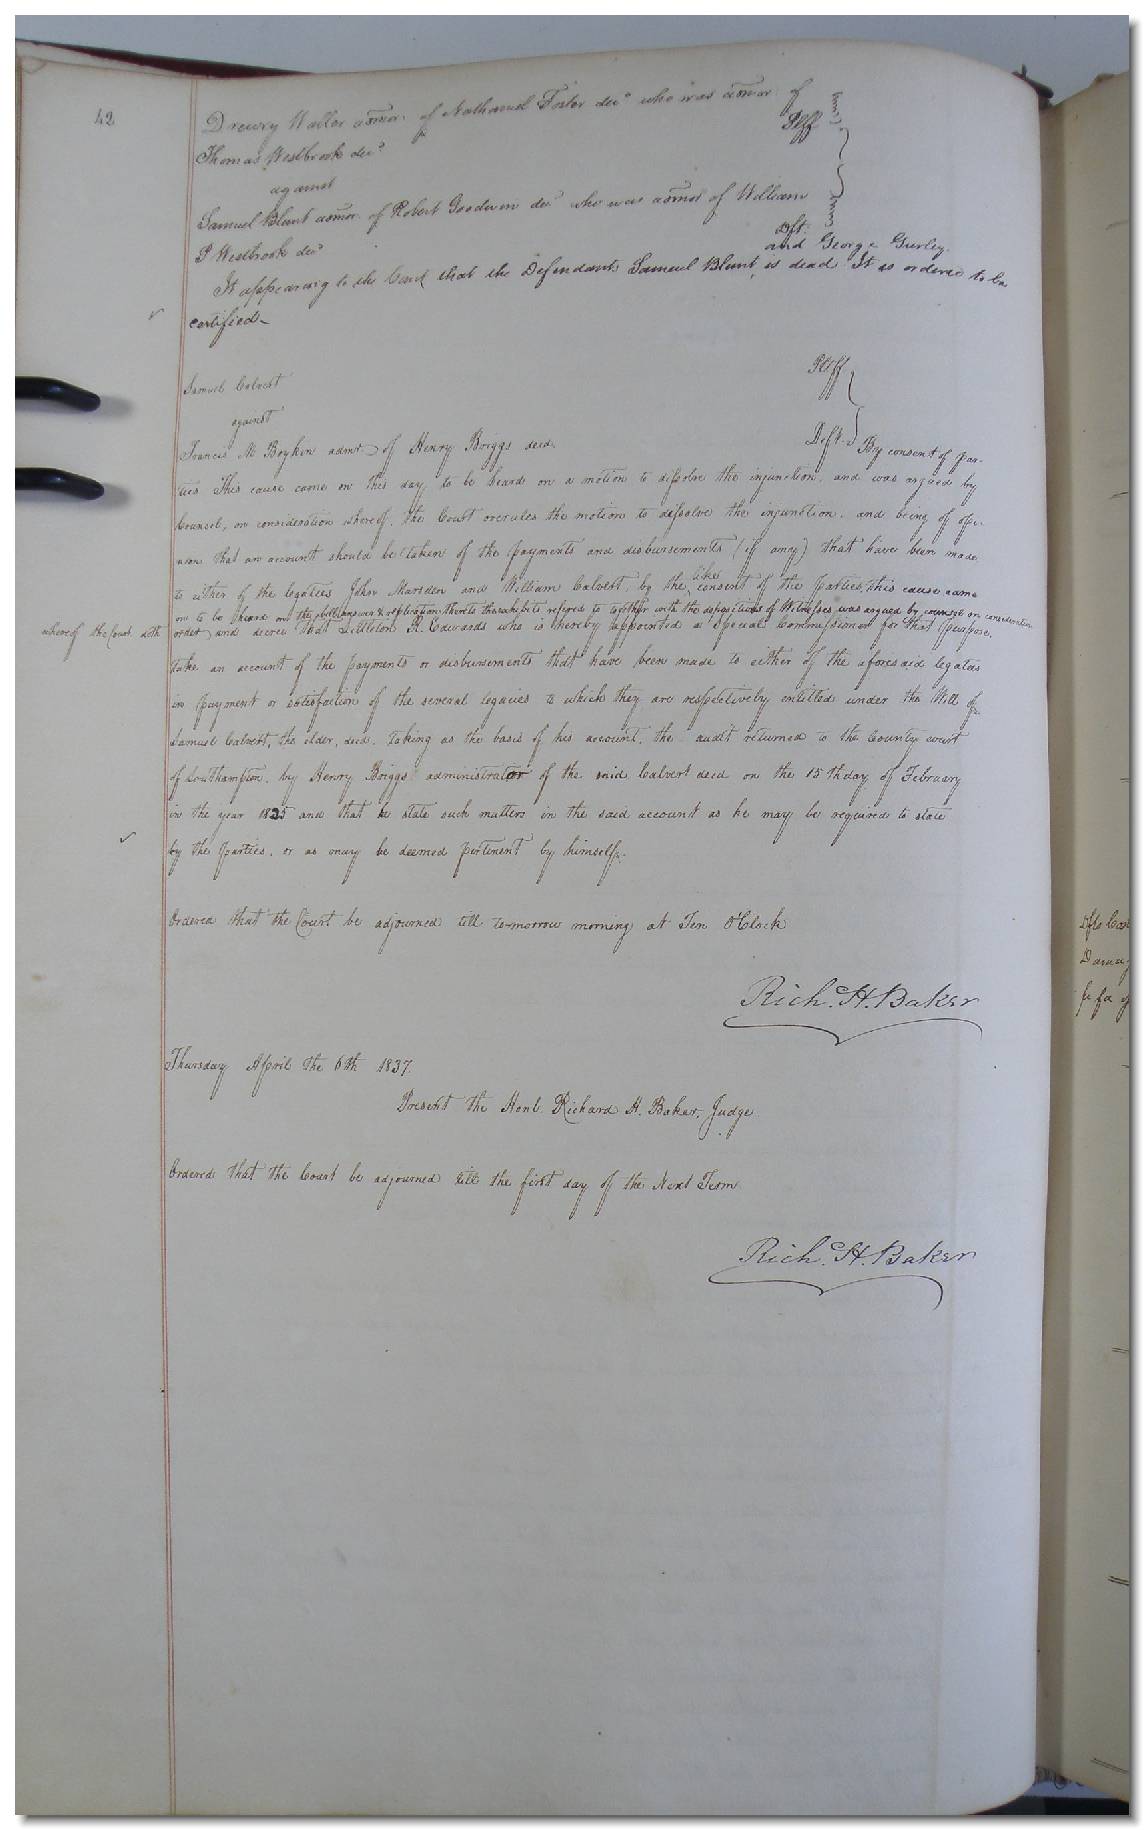 42
Drewry Waller admor. of Nathaniel Foster decd who was admor of
Thomas Westbrook decd Plff
against
Samuel Blunt admor of Robert Goodwin decd who was admor of William
P Westbrook decd Dft.
and George Gurley
It appearing to the Court that the Defendants Samuel Blunt, is dead It is ordered to be
certified—
Samuel Calvert Pltff
against
Francis M Boykin admr. of Henry Briggs decd. Deft. By consent of par-
ties This cause came on this day, to be heard on a motion to dissolve the injunction, and was argued by
Counsel, on consideration whereof, the Court overules the motion to dissolve the injunction, and being of opi-
nion that an account should be taken of the payments and disbursements (if any) that have been made
to either of the legatees John Marsden and William Calvert, by the like consent of the parties, this cause came
on to be heard on the bill answer & replication thereto the exhibits refered to together with the depositions of Witnesses, was argued by counsel on consideration
whereof the Court doth order, and decree that Littleton R. Edwards who is hereby appointed a Special Commissioner for that purpose,
take an account of the payments or disbursements that have been made to either of the aforesaid legatees
in payment or satisfaction of the several legacies to which they are respectively entitled under the Will of
Samuel Calvert, the elder, decd. taking as the basis of his account, the audit returned to the County court
of Southampton, by Henry Briggs administrator of the said Calvert decd on the 15th day of February
in the year 1825 and that he state such matters in the said account as he may be required to state
by the parties, or as may be deemed pertinent by himself.
Ordered that the Court be adjourned till to-morrow morning at Ten OClock
Rich. H. Baker
Thursday April the 6th 1837.
Present the Honl. Richard H. Baker, Judge
Ordered that the Court be adjourned till the first day of the Next Term
Rich. H. Baker